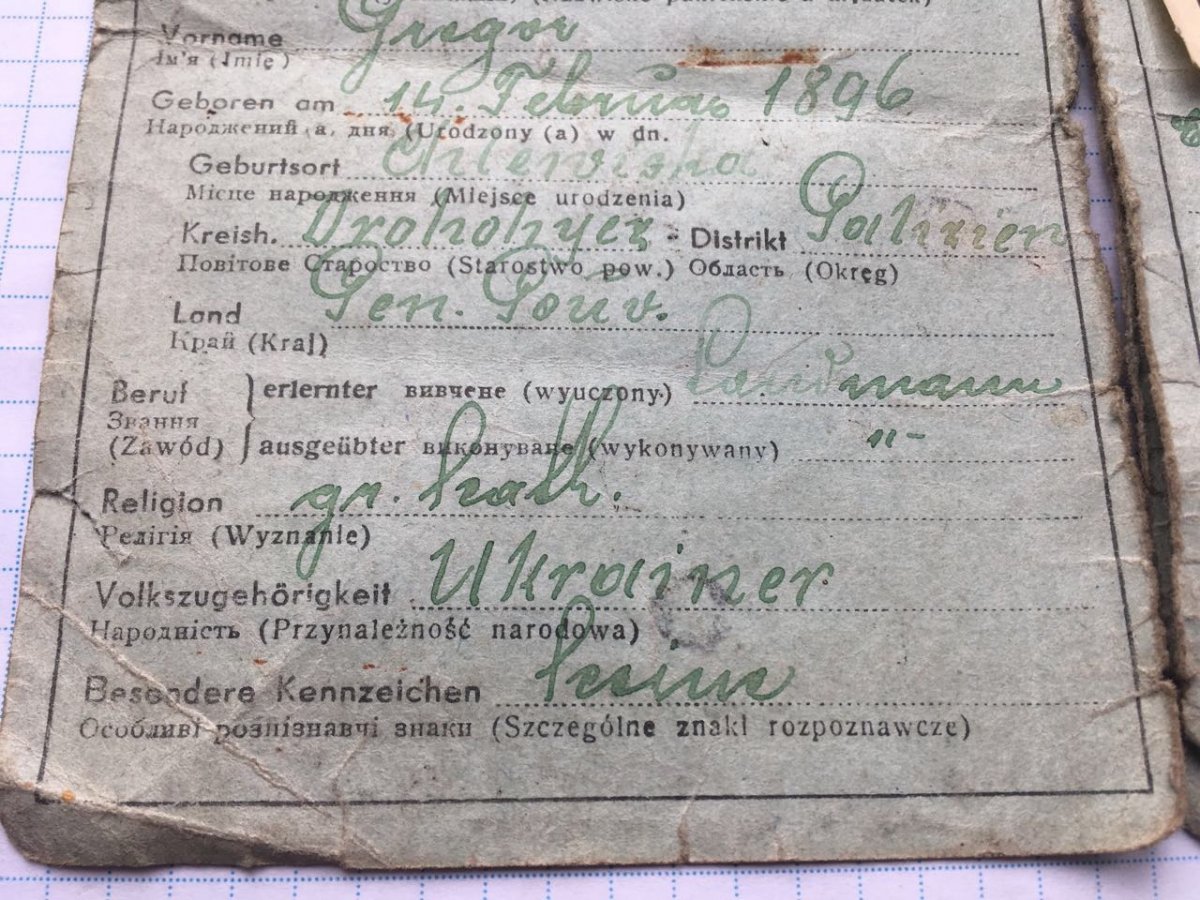 Vorname Gregor
Ім'я (Imię)
Geboren am 14. Februar 1896
Народжений (а) дня (Urodzony (a) w dn.
Geburtsort
Місце народження (Miejsce urodzenia)
Kreish. Drohobycz - Distrikt Galizien
Повітове Староство (Starostwo pow.) Область (Okręg)
Land Gen. Gouv.
Край (Kraj)
Beruf erlernter вивчене (wyuczony) Landmann
Звання
(Zawód) ausgeübter виконуване (wykonywany) "-
Religion gr. kath.
Релігія (Wyznanie)
Volkszugehörigkeit Ukrainer
Народність (Przynależność narodowa)
Besondere Kennzeichen keine
Особливі розпізнавчі знаки (Szczególne znaki rozpoznawcze)